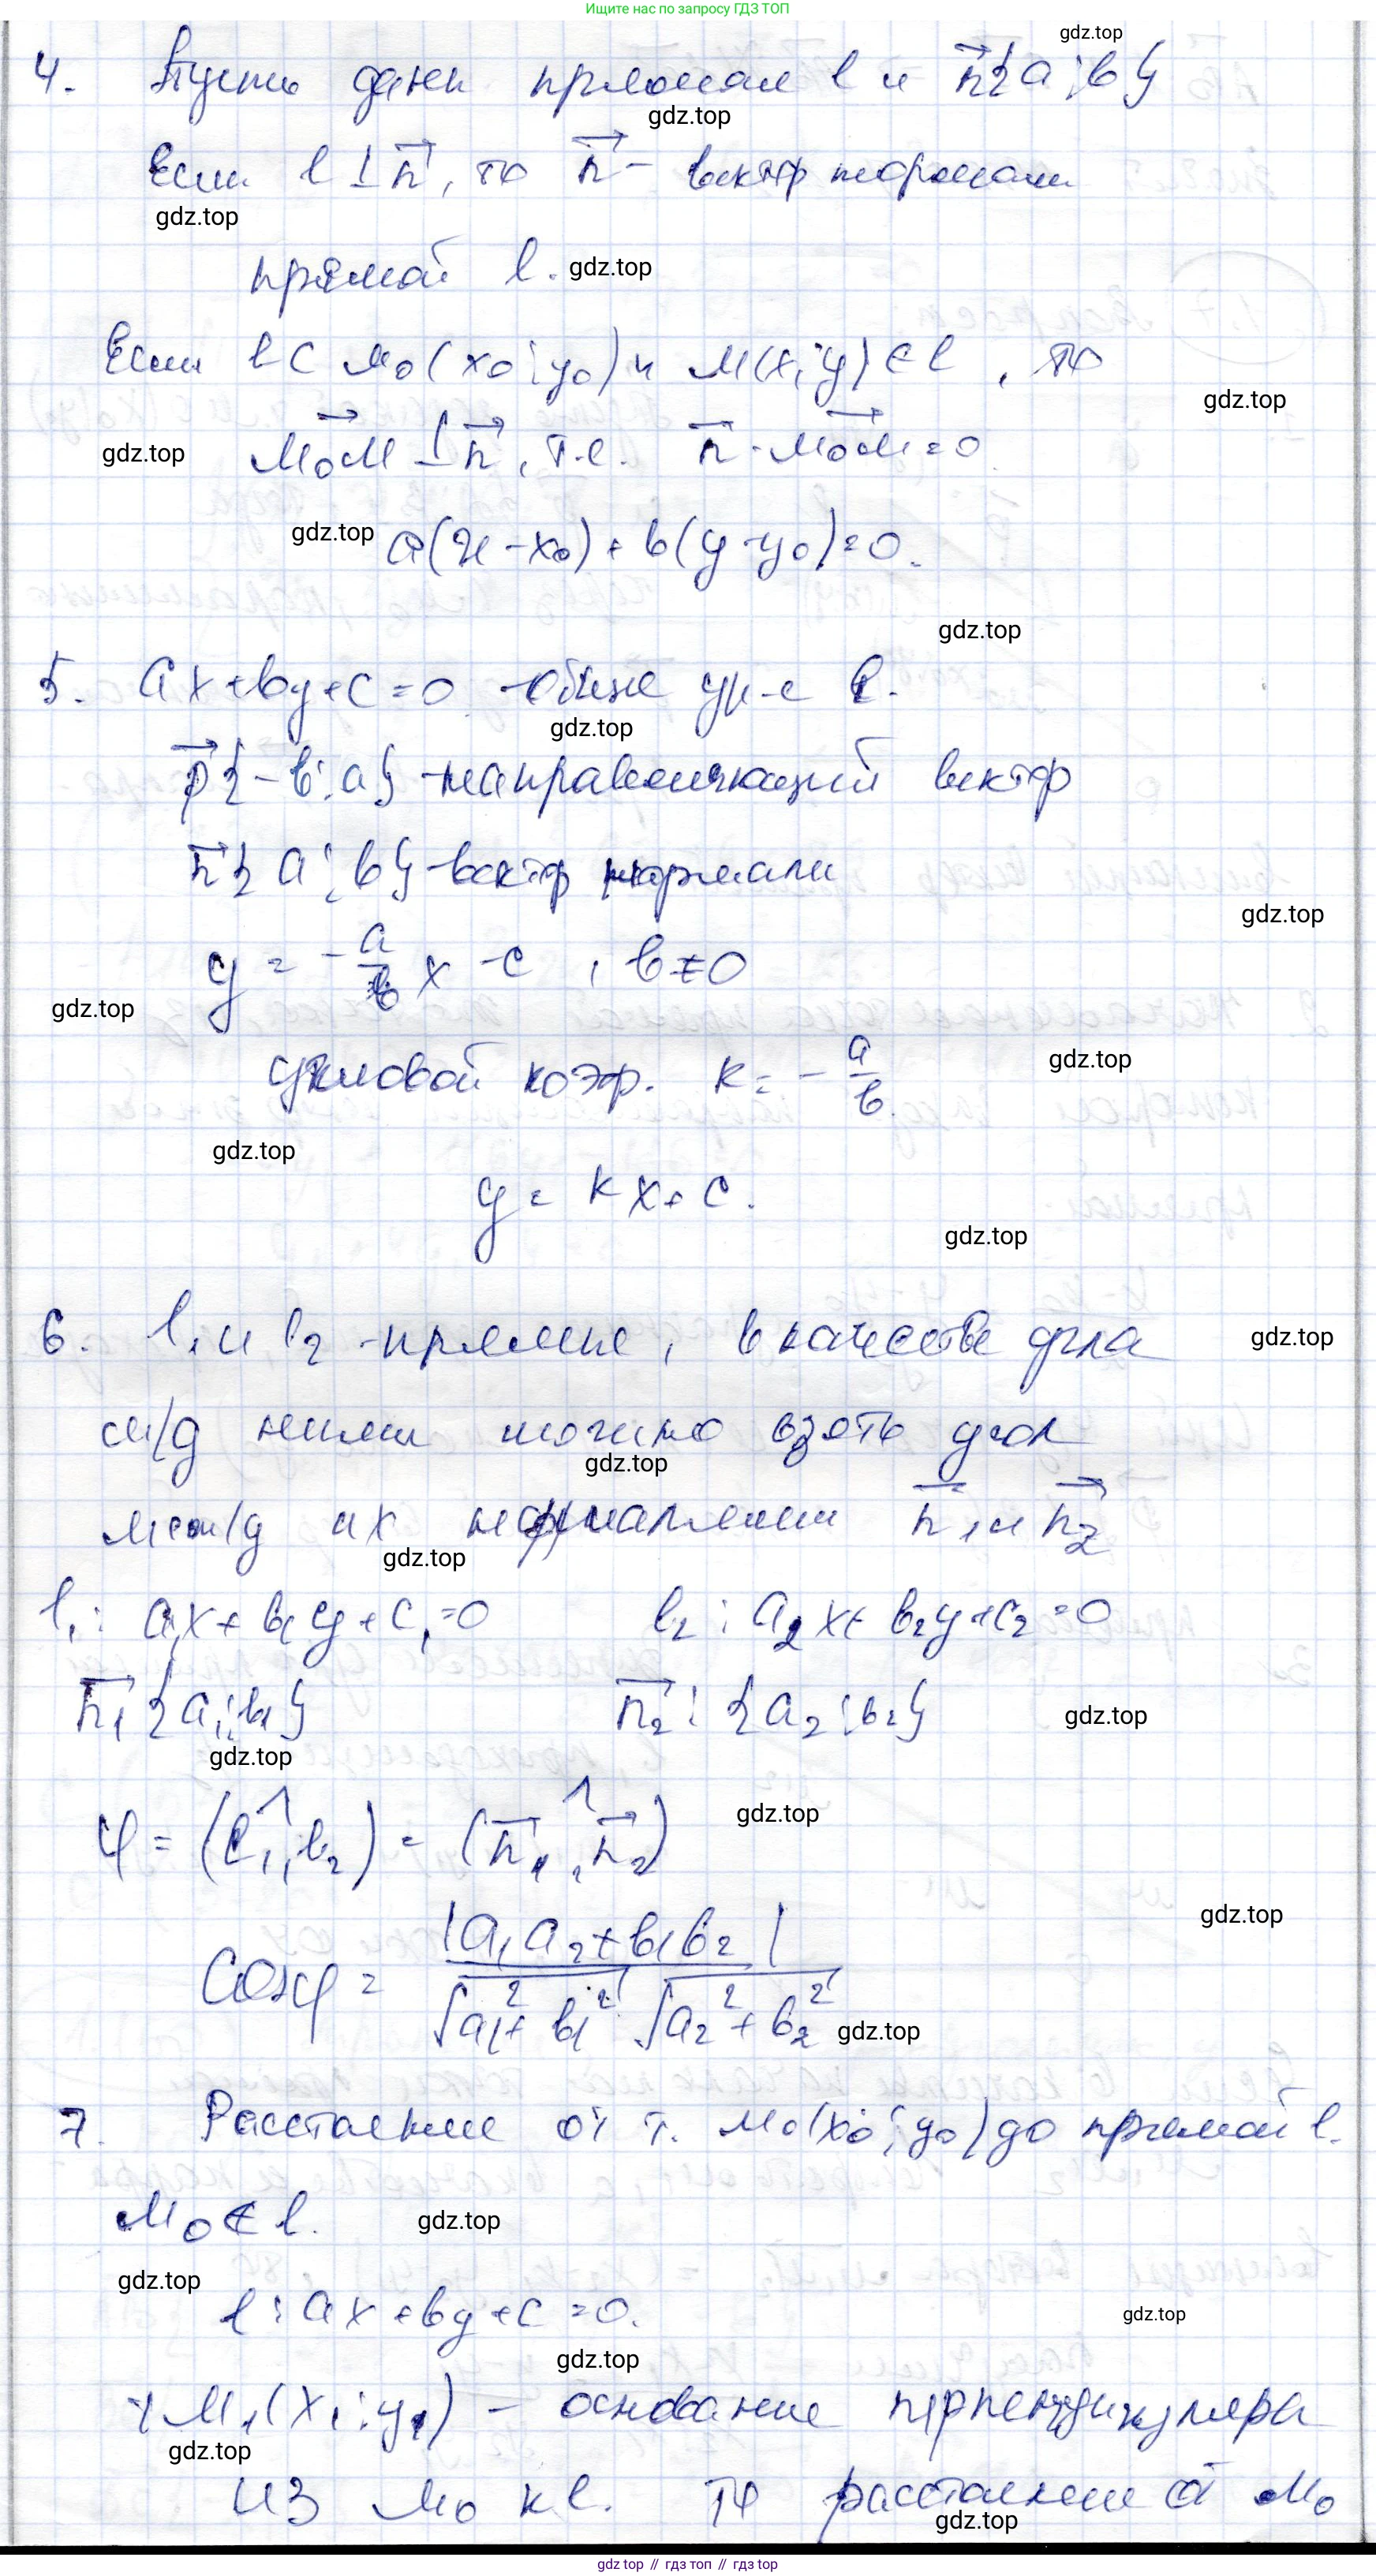 Ищите нас по запросу ГДЗ ТОП
gdz.top
4. Пусть даны прямая l и n⃗{a; b}
gdz.top
Если l ⊥ n⃗, то n⃗ – вектор нормали
gdz.top
прямой l. gdz.top
Если l ⊂ M₀(x₀; y₀) и M(x; y) ∈ l, то
gdz.top
gdz.top M₀M⃗ ⊥ n⃗, т.е. n⃗ · M₀M⃗ = 0
gdz.top a(x - x₀) + b(y - y₀) = 0.
gdz.top
5. ax + by + c = 0 - общее ур-е l.
gdz.top
p⃗{-b; a} - направляющий вектор
n⃗{a; b} - вектор нормали
gdz.top
y = -a/b x - c, b ≠ 0
gdz.top
угловой коэф. k = -a/b
gdz.top
gdz.top
y = kx + c.
gdz.top
6. l₁ и l₂ - прямые, в качестве угла
gdz.top
м/д ними можно взять угол
gdz.top
межд их нормалями n⃗₁ и n⃗₂
gdz.top
l₁: a₁x + b₁y + c₁ = 0 l₂: a₂x + b₂y + c₂ = 0
n⃗₁{a₁; b₁} n⃗₂: {a₂; b₂} gdz.top
gdz.top
φ = (l₁,^ l₂) = (n⃗₁,^ n⃗₂) gdz.top
gdz.top
cosφ = |a₁a₂ + b₁b₂| / √a₁² + b₁² √a₂² + b₂² gdz.top
7. Расстояние от т. M₀(x₀; y₀) до прямой l.
M₀ ∉ l. gdz.top
gdz.top
l: ax + by + c = 0. gdz.top
gdz.top
M₁(x₁; y₁) – основание перпендикуляра
gdz.top
из M₀ к l. расстояние от M₀
gdz.top
gdz top // гдз топ // гдз top